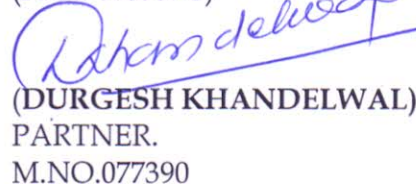 (DURGESH KHANDELWAL)
PARTNER.
M.NO.077390